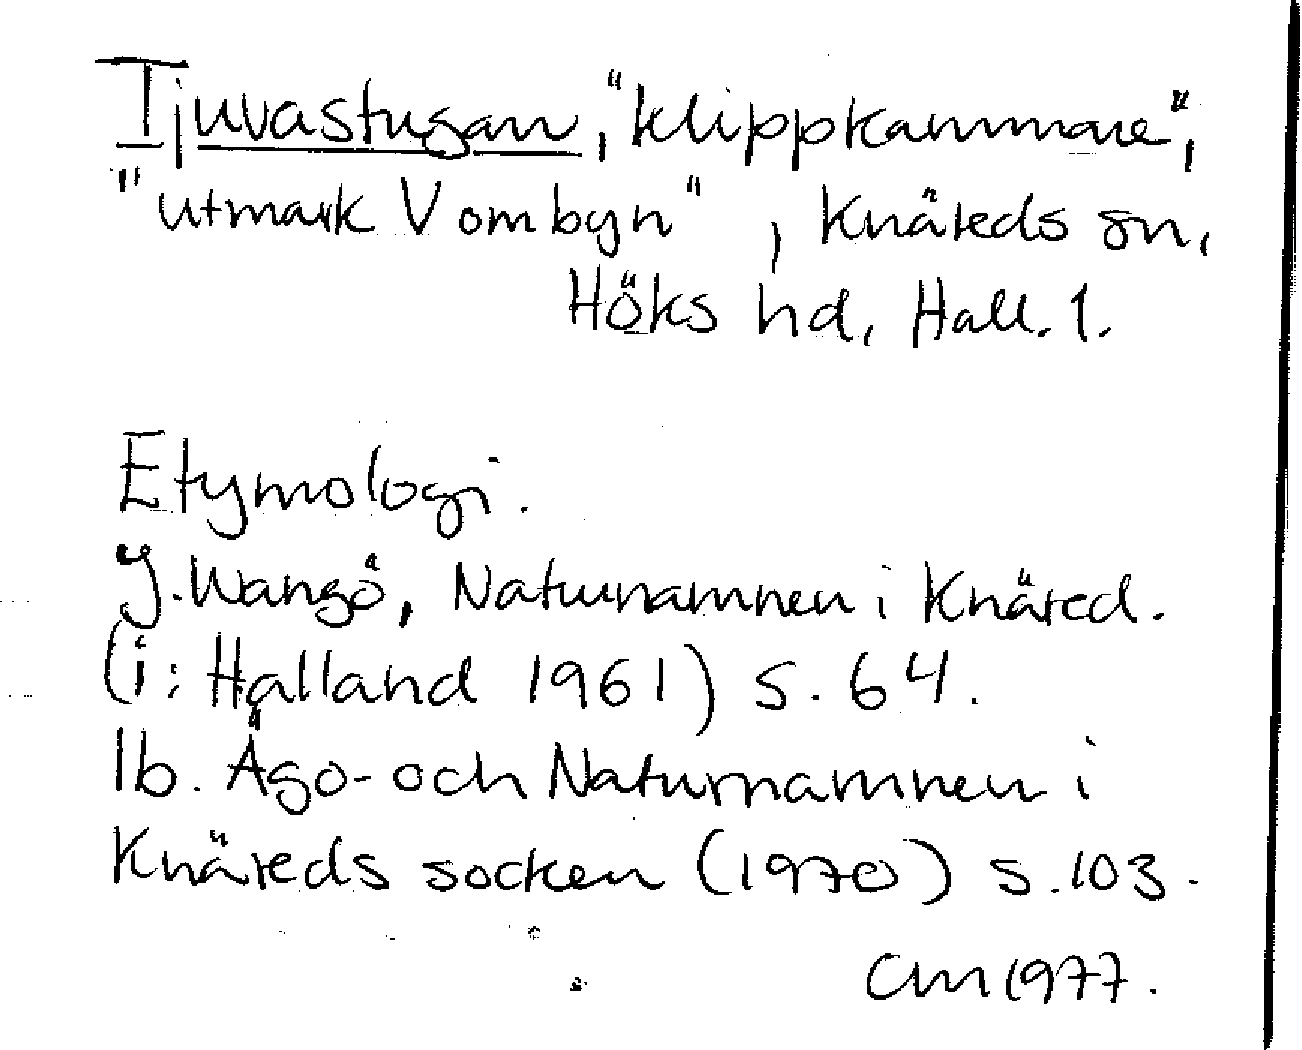 Tjuvastugan, "klippkammare",
"utmark V om byn", Knäreds sn,
Höks hd, Hall. l.
Etymologi.
J. Wangö, Naturnamnen i Knäred.
(i: Halland 1961) s. 64.
Ib. Ägo- och Naturnamnen i
Knäreds socken (1970) s. 103.
CM 1977.